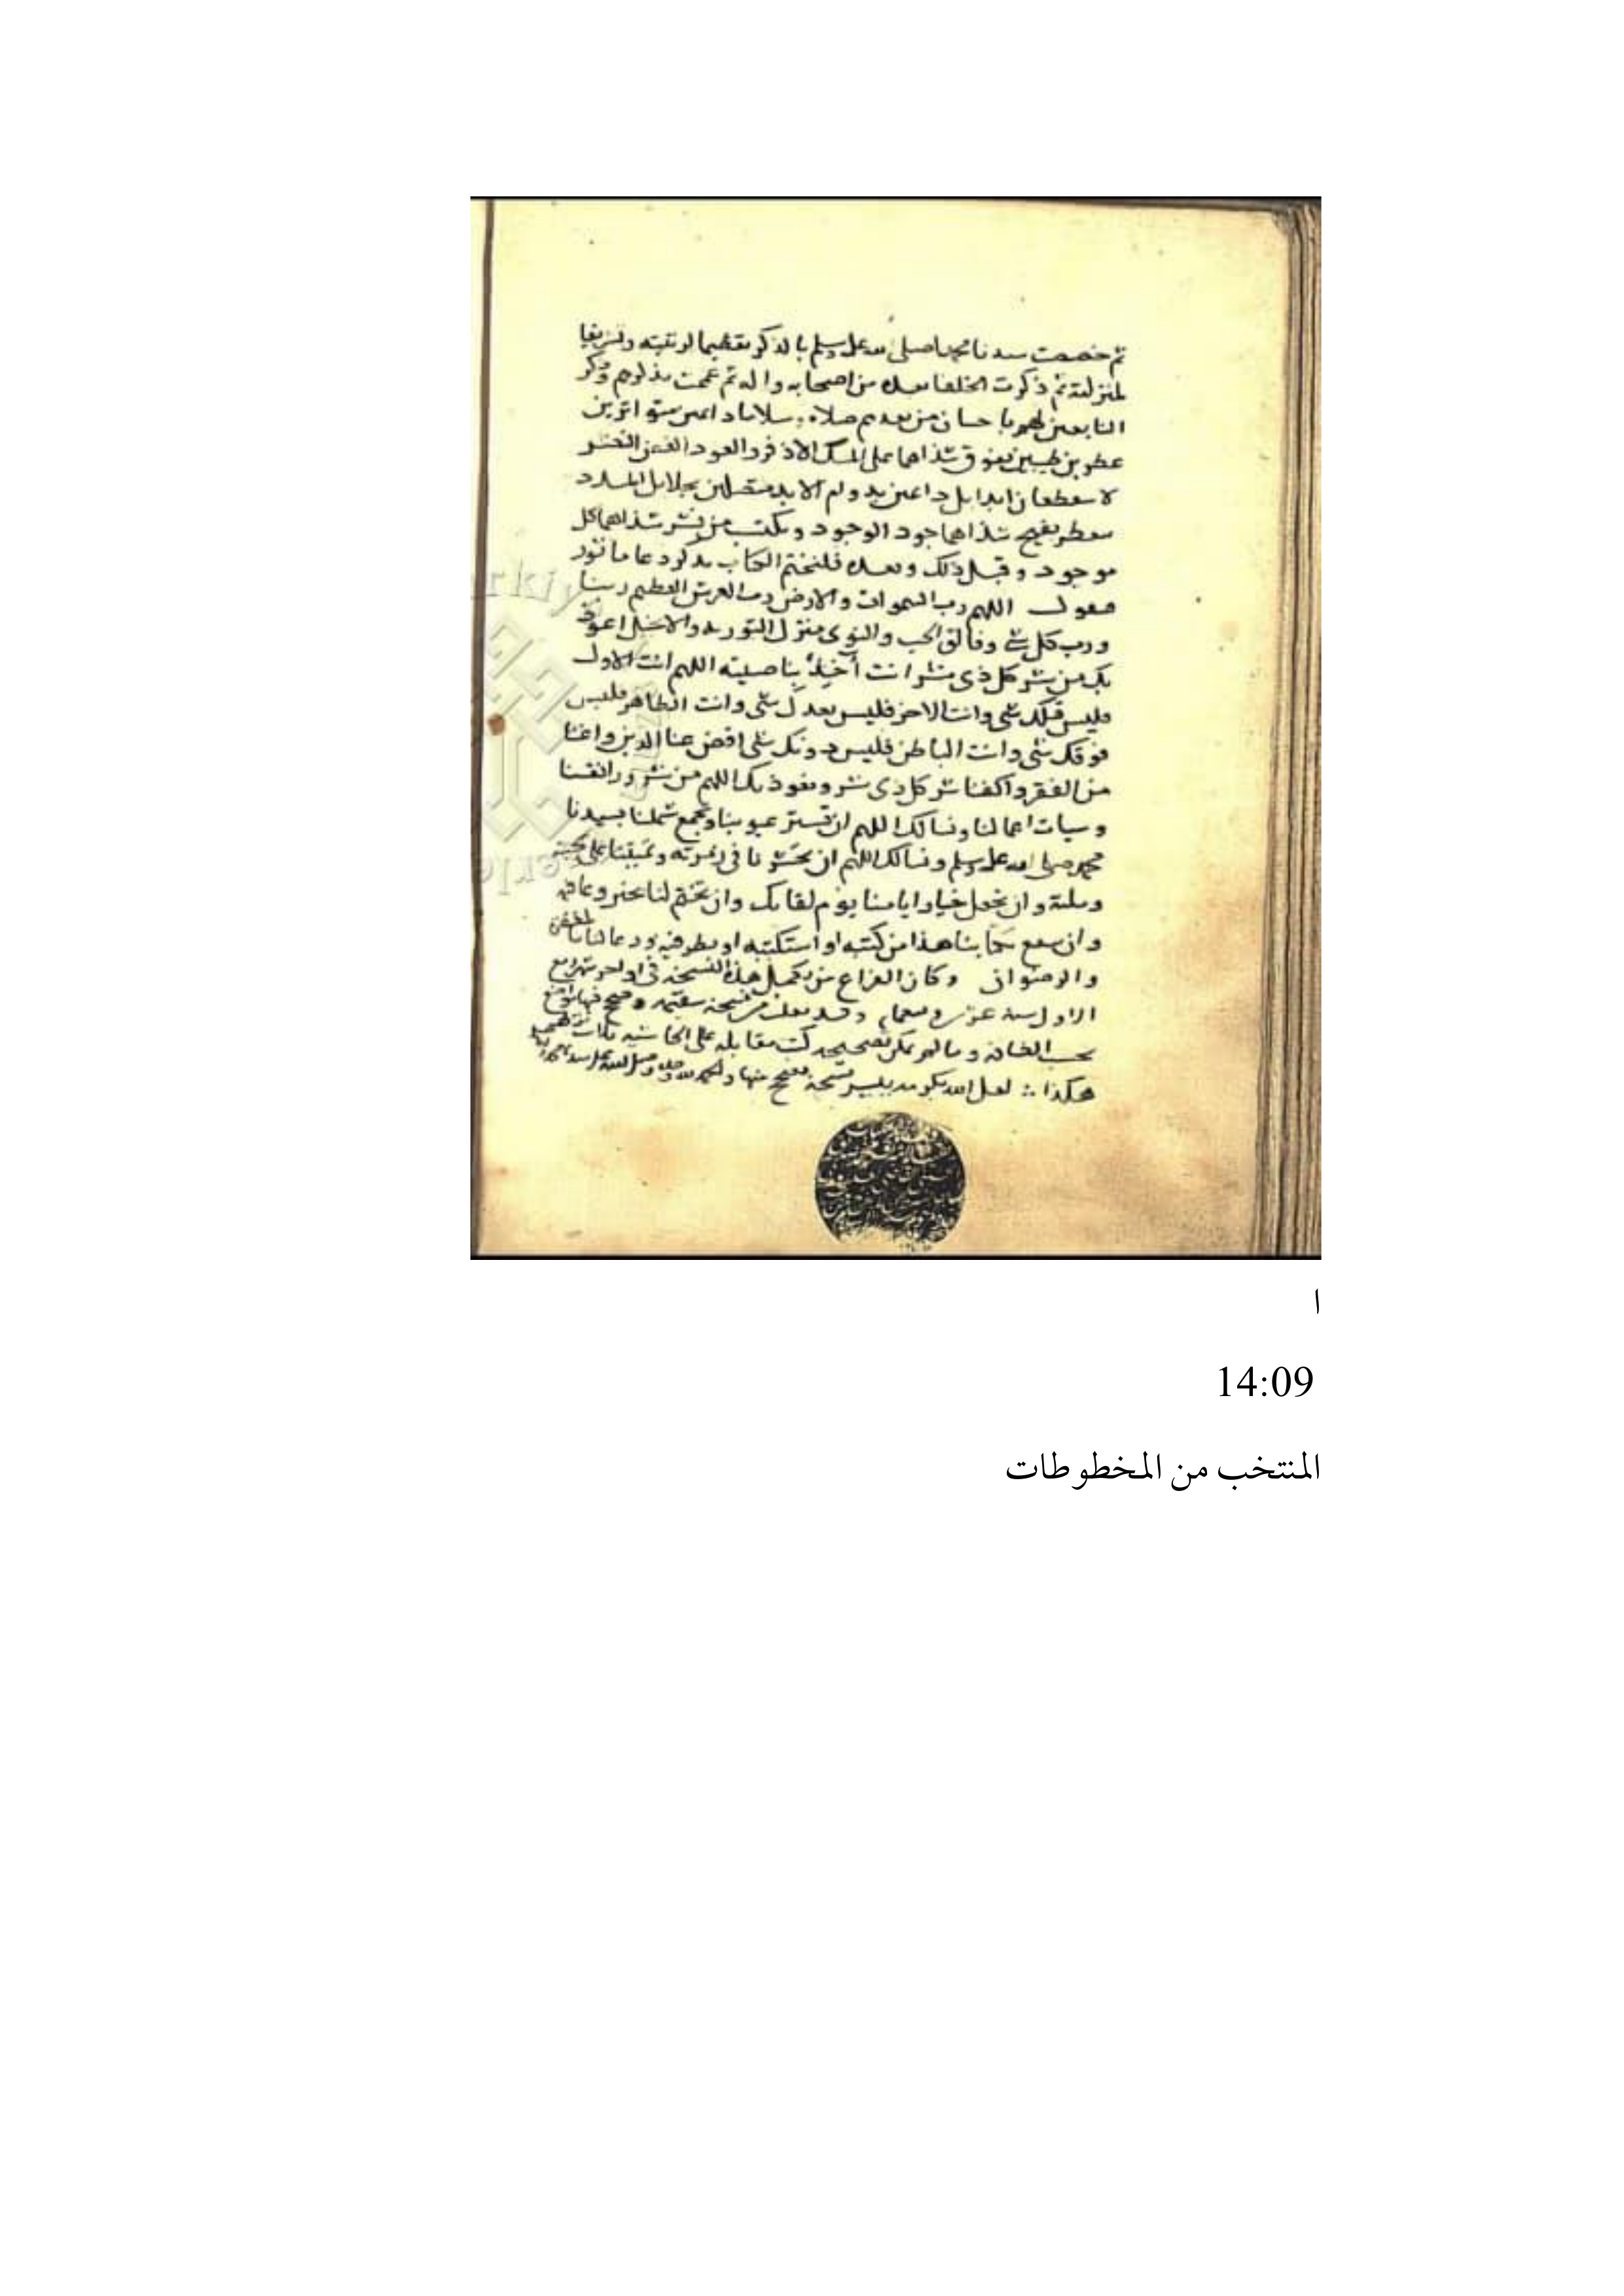 ثم خصصت سيدنا محمدا صلى الله عليه وسلم بالذكر تعظيما لرتبته وتشريفا
لمنزلته ثم ذكرت الخلفا بعده من اصحابه واله ثم عممت بذكرهم وذكر
التابعين لهم باحسان من بعدهم صلاه وسلاما دايمين متواترين
عطرين طيبين يفوق شذاهما على المسك الاذفر والعود
لا ينقطعان ابدا بل دايمين بدوام الابد متصلين
شذاهما جود الوجود من نشر شذاهما كل
موجود وقبل ذلك وبعده فلنختم الكتاب بذكر دعا ماثور
فنقول اللهم رب السموات والارض رب العرش العظيم ربنا
ورب كل شي وفالق الحب والنوى منزل التوريه والانجيل اعوذ
بك من شر كل ذى شر انت آخذ بناصيته اللهم انت الاول
فليس قبلك شى وانت الاخر فليس بعدك شى وانت الظاهر فليس
فوقك شى وانت الباطن فليس دونك شى اقض عنا الدين واغننا
من الفقر واكفنا شر كل ذى شر ونعوذ بك اللهم من شرور انفسنا
وسيات اعمالنا ونسالك اللهم ان تستر عيوبنا وتجمع شملنا بسيدنا
محمد صلى الله عليه وسلم ونسالك اللهم ان تحشرنا فى زمرته وتميتنا على محبته
وملته وان تجعل خيار ايامنا يوم لقايك وان تختم لنا بخير وعافيه
وان ينفع بكتابنا هذا من كتبه او استكتبه او نظر فيه ودعا لنا بالمغفرة
والرضوان وكان الفراغ من تكميل هذه النسخه فى اواخر شهر ربيع
الاول سنه وقد نقلت من نسخه سقيمه وصحح فيها مواضع
بحسب الطاقه وما لم يمكن تصحيحه كتب مقابله على الحاشيه
هكذا لعل الله بكرمه ييسر نسخه يصحح منها والحمد لله وحده وصلى الله على سيدنا محمد
ا
14:09
المنتخب من المخطوطات